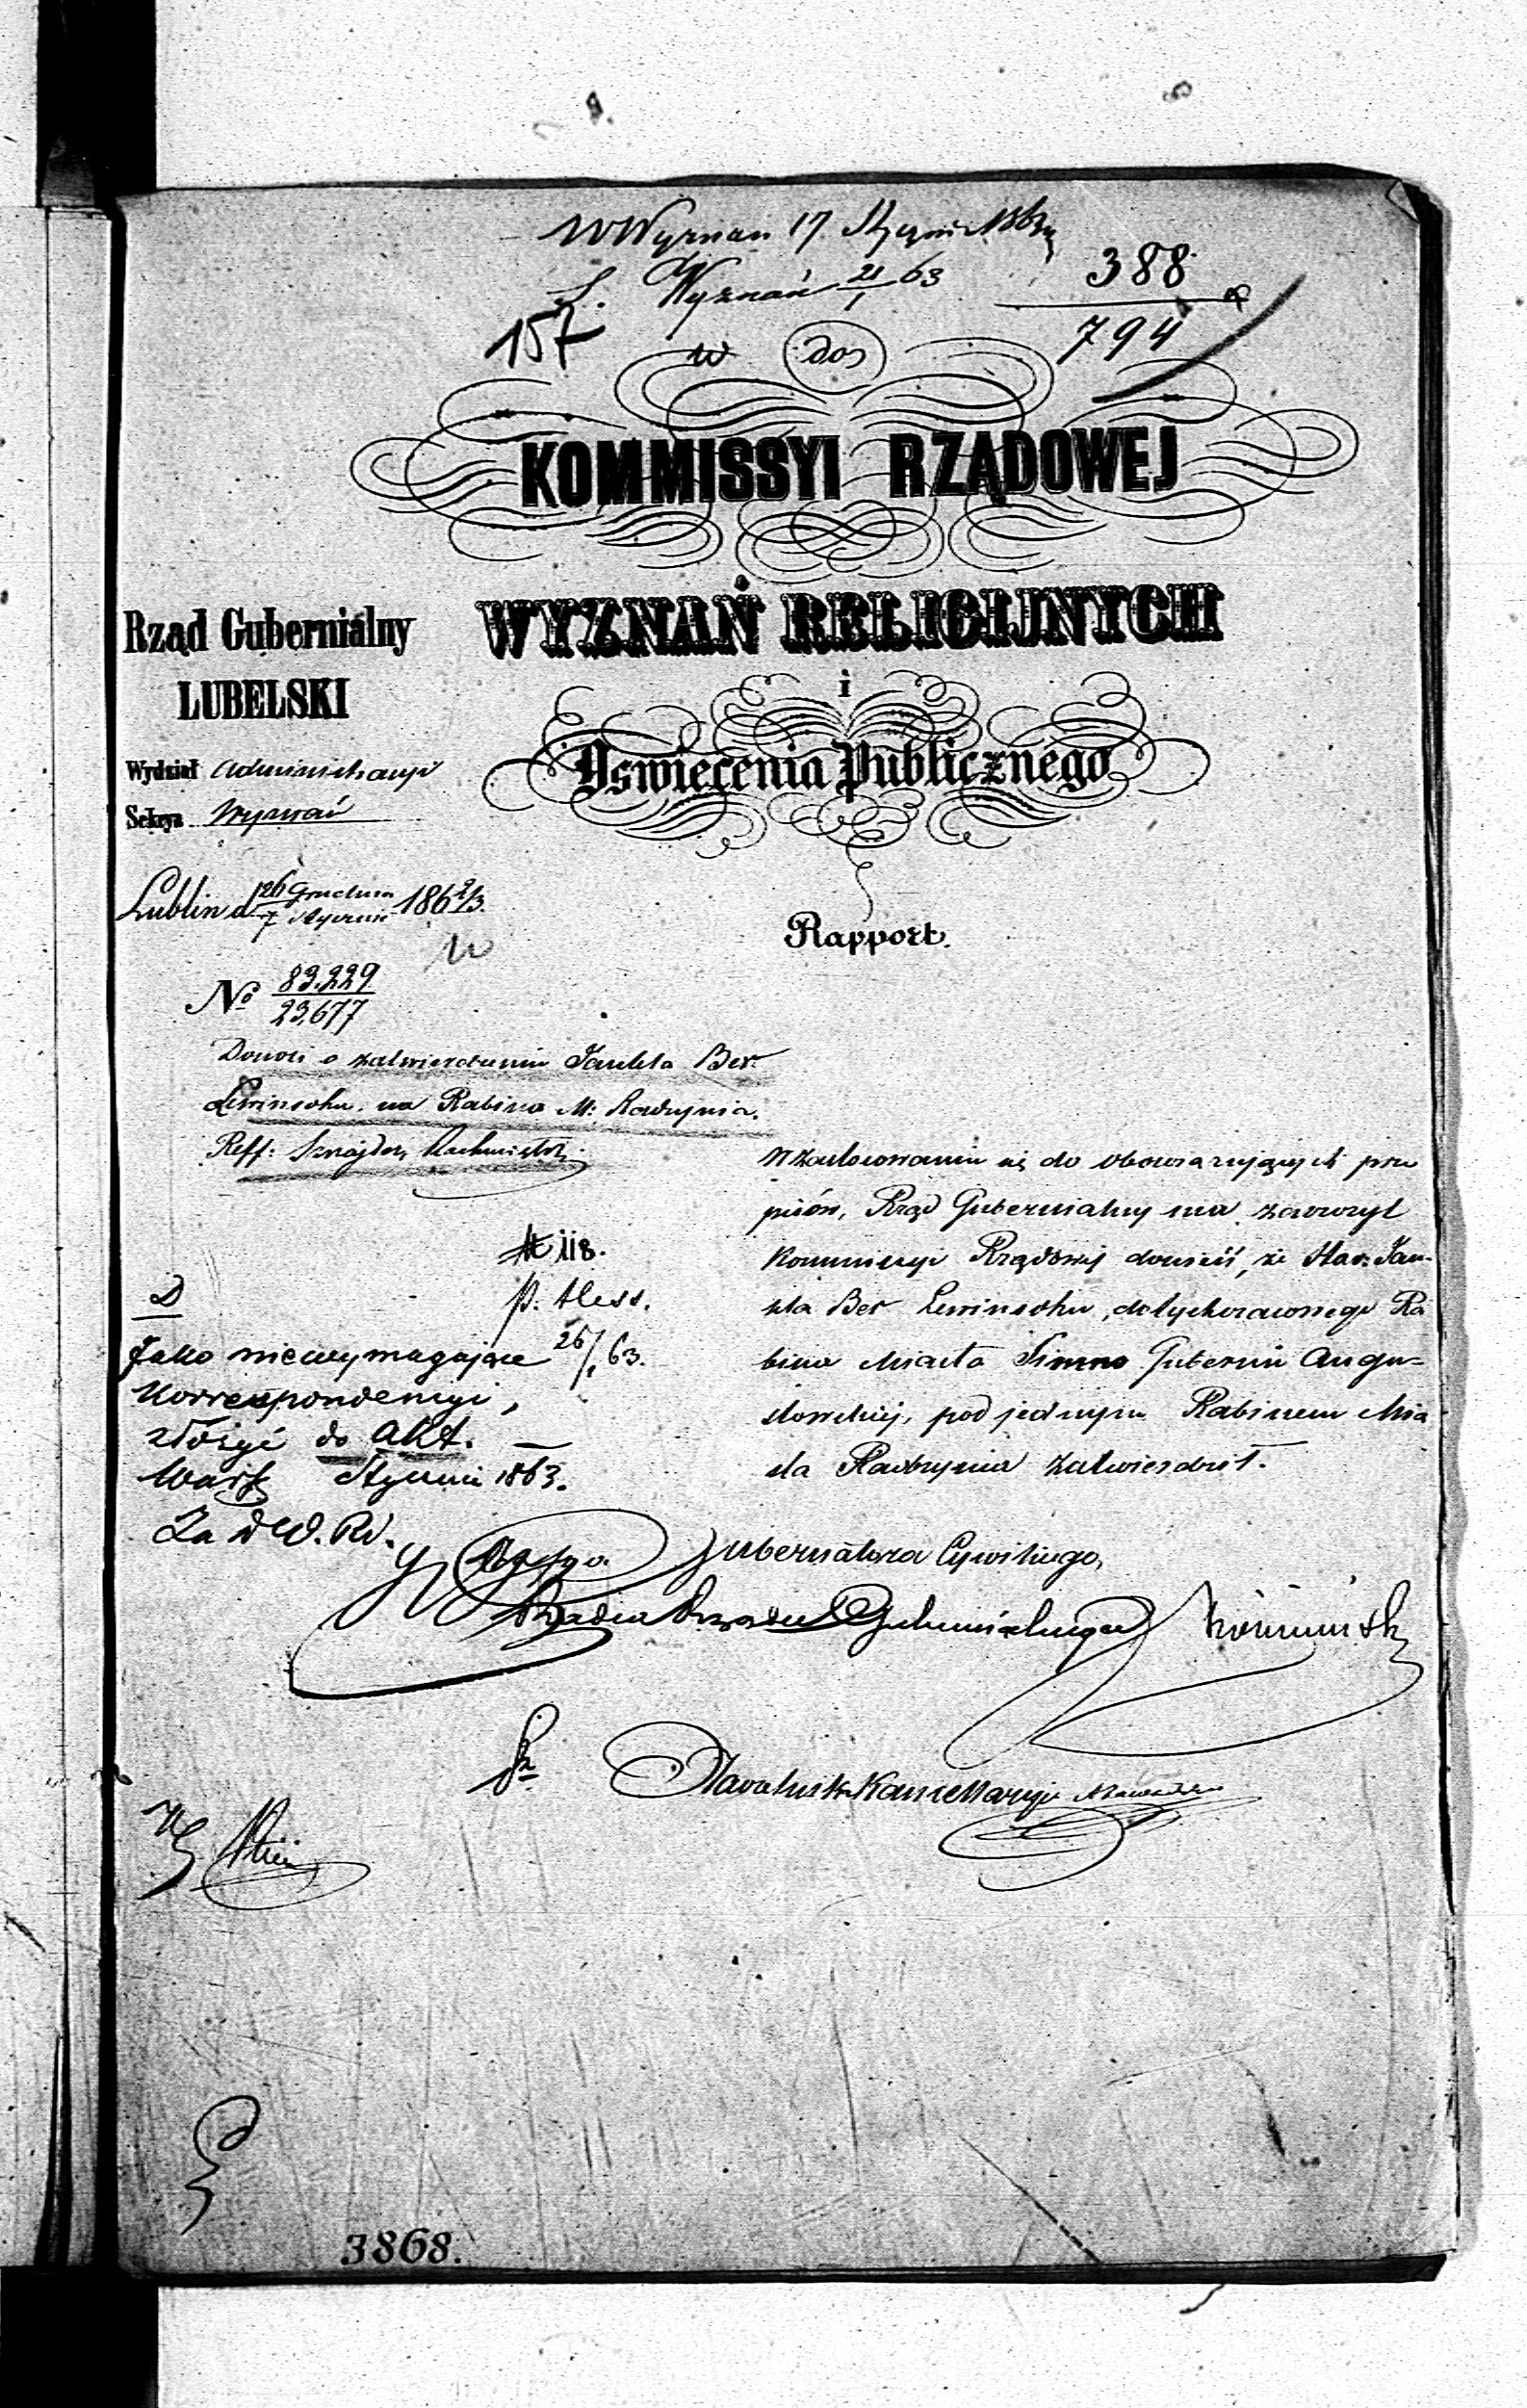 W Wyznań 17 Stycznia 1863
L. Wyznań 21/1 63
388
794
157
w dos
KOMMISSYI RZĄDOWEJ
WYZNAŃ RELIGIJNYCH
i
Oświecenia Publicznego
Rząd Gubernialny
LUBELSKI
Wydział Administracyi
Sekcya Wyznań
Lublin d 26 Grudnia / 7 Stycznia 1862/3.
Rapport.
No 83,229
23,677
Donosi o zatwierdzeniu Jankla Ber
Lewinsohn na Rabina M: Radzynia.
Reff: Sznajder,
W zastosowaniu się do obowiązujących prze
pisów, Rząd Gubernialny ma zaszczyt
Kommissyi Rządowej donieść, że Star: Jan-
kla Ber Lewinsohn, dotychczasowego Ra
bina Miasta Simno Gubernii Augu-
stowskiej, pod jednym Rabinem Mia
sta Radzynia zatwierdził.
118.
26/1 63.
D
Jako niewymagające
Korrespondencyi,
złożyć do Akt.
Warsz Stycznia 1863.
Za
Gubernatora Cywilnego,
Radca Rządu Gubernialnego
Naczelnik Kancellaryi
3868.